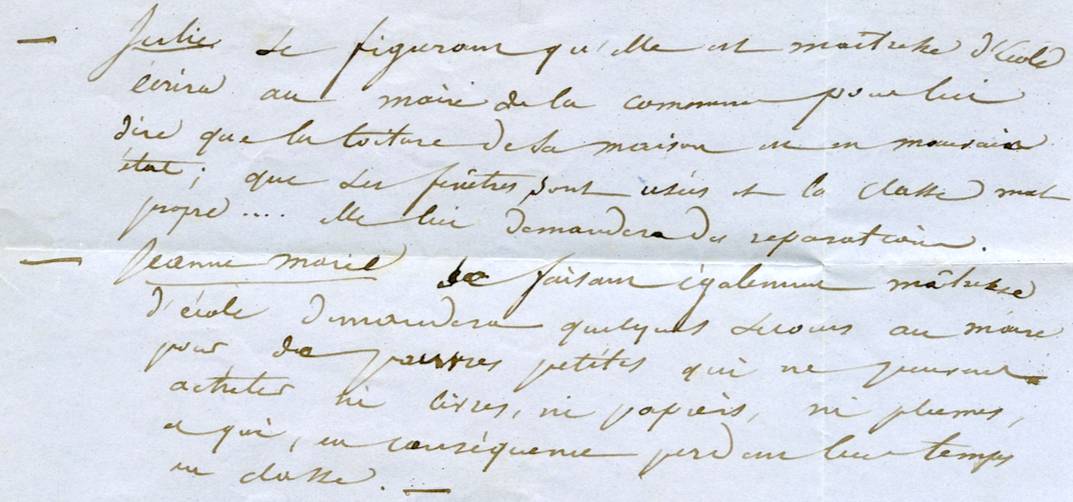 — Julie se figurant qu'elle est maîtresse d'école
écrira au maire de la commune pour lui
dire que la toiture de sa maison est en mauvais
état ; que les fenêtres sont usées et la classe mal
propre .... elle lui demandera des réparations.
— Jeanne Marie se faisant également maîtresse
d'école demandera quelques secours au maire
pour de pauvres petites qui ne peuvent
acheter ni livres, ni papiers, ni plumes,
et qui, en conséquence perdent leur temps
en classe. —